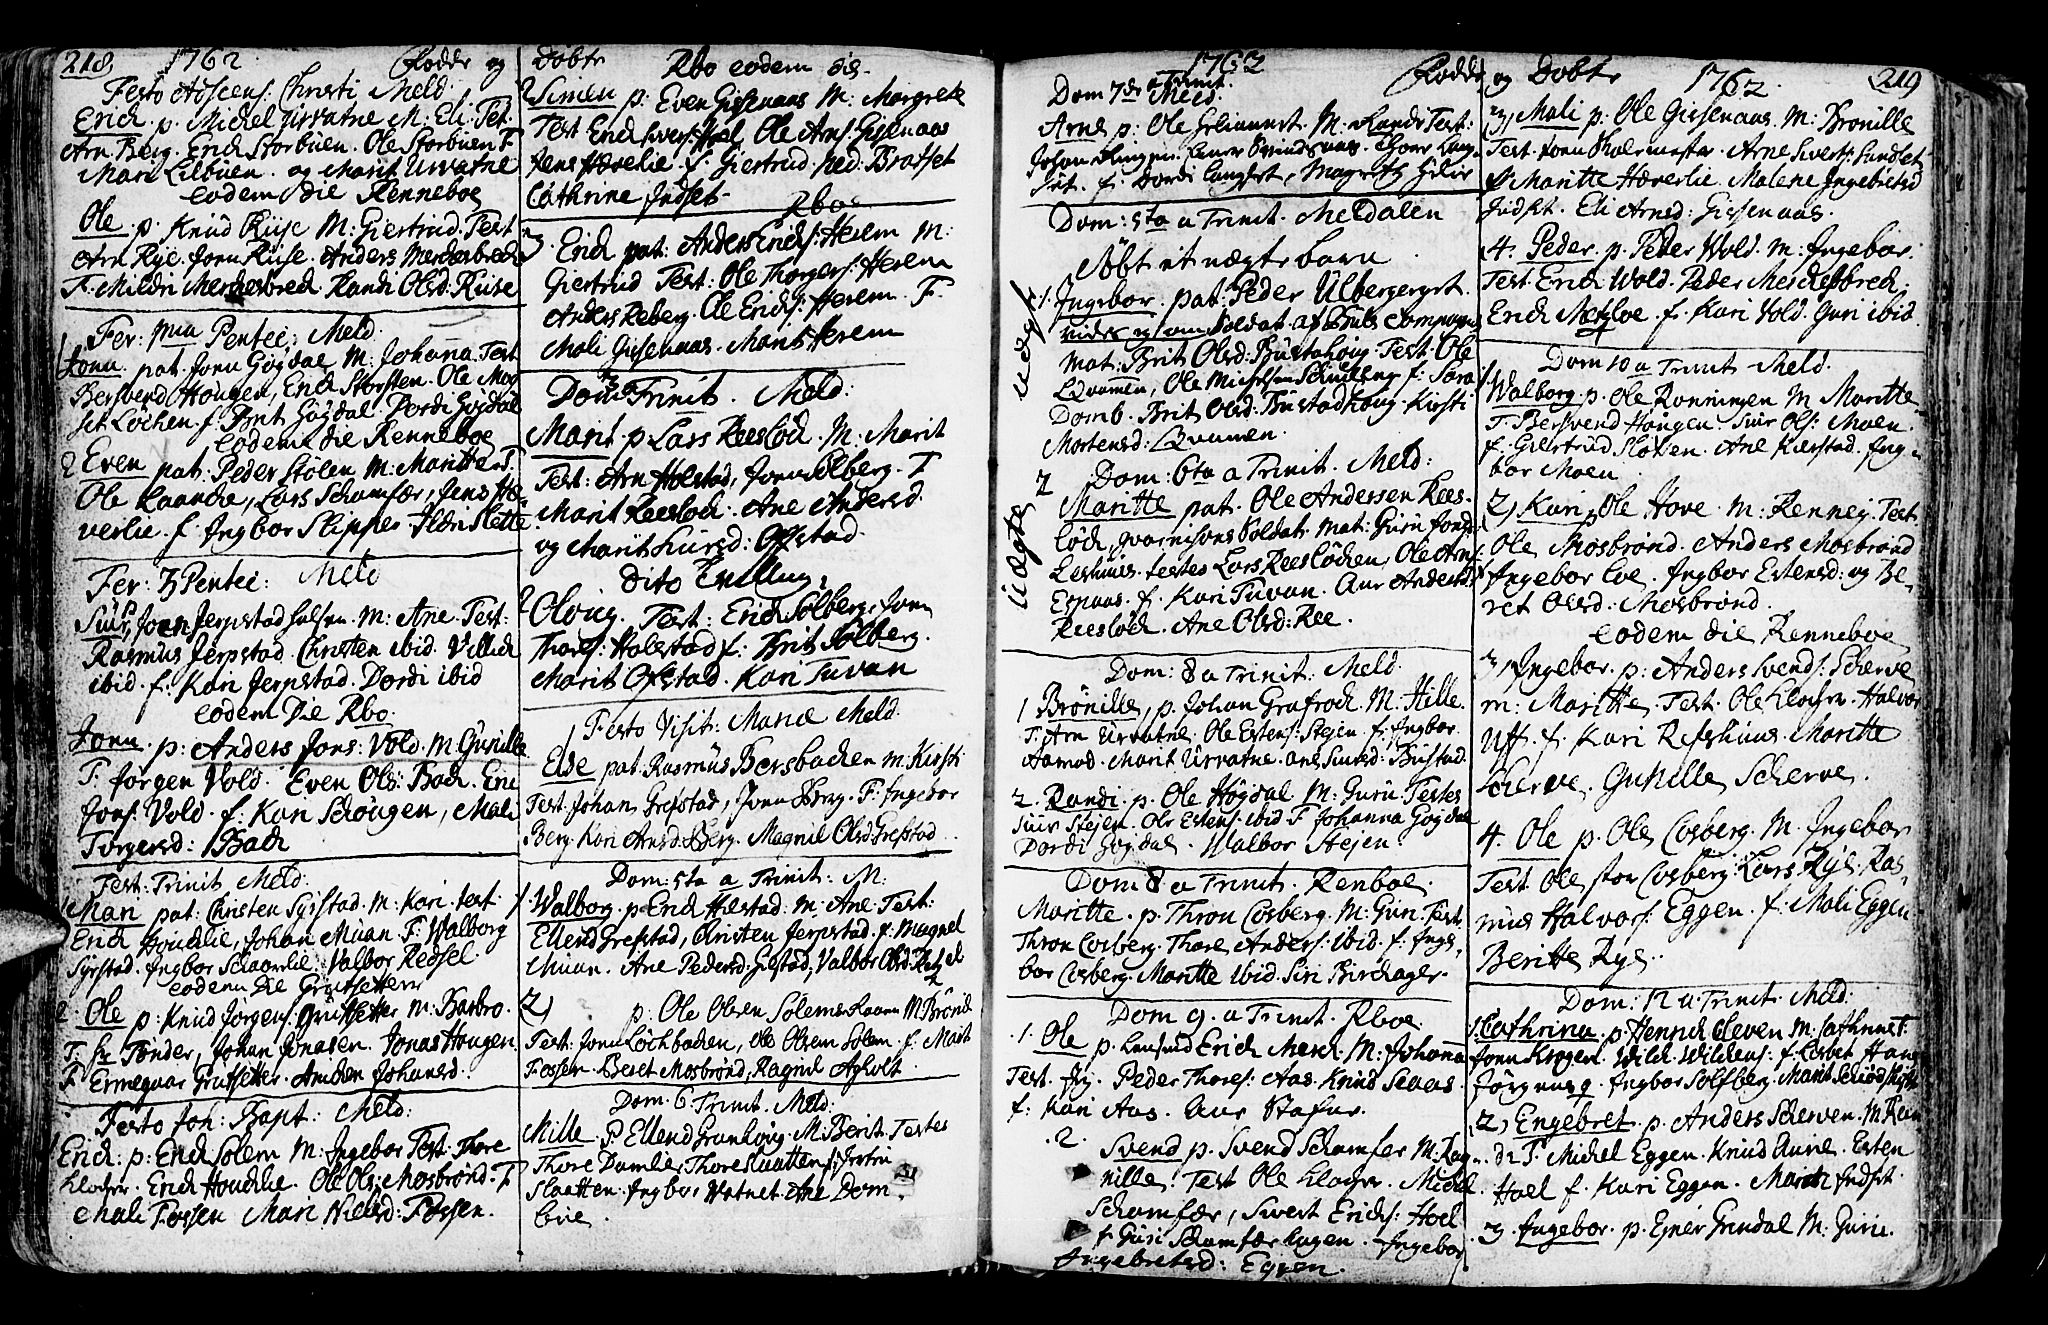 218 1762 Fødde og
Festo Ascens: Christi Meld.
Erich. p. Michel Urvatne M: Eli Test
Arn Berg. Erich Storbuen. Ole Storbuen F
Mari Lilbuen. og Marit Urvatne
eodem die Renneboe
Ole p. Knud Ruse M: Giertrud. Test
Arn Rye. Jonn Ruse. Anders Merchesbrech
F. Mildri Merchesbrech Randi Olsd: Ruse
Fer: Mia Pentec: Meld.
1 Jonn. pat. Jonn Gogdal M: Johanna Test
Bersvend Hougen, Erich Storsten. Ole Mog
set Løchen f. Brit Gogdal Dordi Gogdal
eodem die Renneboe
2 Even pat: Peder Stølen M: Maritte T.
Ole Laanche, Lars Schamfær, Jens Hæ
verlie f. Ingbor Slipper Ildri Slette
Fer: 3 Pentec: Meld
Siur, Joen Jerpstad M: Ane Test:
Rasmus Jerpstad Christen ibid Villich
ibid f. Kari Jerpstad. Dordi ibid
eodem Die Rbo.
Jonn. p: Anders Jons: Vold. M. Gunille
T. Jørgen Vold. Even Ols: Bach. Enc
Jons: Vold f: Kari Schougen, Mali
Torgersd: Bach
Fest: Trinit Meld.
1 Mari pat: Christen Syrstad M: Kari test
Erich Houchlie, Johan Muan F: Walborg
Syrstad. Ingbor Schaarlie Valbor Redsel
eodem Die Grutsetter
2. Ole p: Knud Jørgens: Grutsetter M: Barbro.
T. hr Tønder, Johan Jonasen. Jonas Hougen.
F Ermegaar Grutsetter. Anchen Johansd:
Festo Joh: Bapt: Meld:
Erich. p: Erich Solem M: Ingebor Test: Thore
Klocker. Erich Houchlie. Ole Ols: Mosbrønd. F
Mali Fossen Mari Nielsd: Fossen.
Døbte Rbo eodem die.
2 Simen p: Even Gissenaas M: Margrete
Test Erich Sivers: Hoel Ole Arns: Gissenaas
Jens Hæverlie f: Giertrud ned. Bratset
Cathrine Indset
Rbo
3. Erich pat: Anders Erichs: Herem M:
Giertrud Test: Ole Thorgers: Herem
Anders Reberg. Ole Erichs: Herem. F.
Mali Gissenaas. Marit Herem
Dom 3 Trinit. Meld:
Marit p Lars Reesloch. M: Marit
Test: Arn Holstad, Jonn Solberg. F
Marit Reesloch. Ane Andersd.
og Marit Lursd: Offstad.
Dito
2 Oloug. Test: Erich Solberg. Jonn
Thores: Holestad f: Brit Solberg.
Marit Ofstad. Kari Tuvan
Festo Visit: Mariæ Meld.
1 Else pat. Rasmus Bersbachen M: Kirsti
Test Johan Grefstad, Jonn Berg. F: Ingebor
Berg. Kari Arnsd: Berg. Magnil Olsd: Grefstad
Dom: 5ta a Trinit: M:
1. Walborg p Erich Holstad M: Ane Test:
Ellend Grefstad, Christen Jerpstad f: Magnel
Muan. Ane Pedersd: Gilstad, Valbor Olsd:
2) p. Ole Olsen Solems M: Brønil
Test: Jonn Løchbachen, Ole Olsen Solem f. Marit
Fossen Beret Mosbrønd, Ragnil Agholt
Dom. 6 Trinit. Meld:
Mille. P. Ellend Granhoug. M. Berit. Testes
Thore Damlie, Thore Slaatten f.
Slaatten. Ingbor Vatnet. Ane Dom
lie.
1762 Fødde
Dom 7de a Trinit.
Meld.
Arne p: Ole M: Randi Test:
Johan
set. f. Dordi Langset, Magreth
Dom: 5ta a Trinit. Meldalen
Døbt et uægte barn
uægt 1. Ingebor pat: Peder Ulbergergst
Compagnie
Mat: Brit Olsd: Bustahoug Test: Ole
Qvamen, Ole Michelsen f: Sara
Domb. Brit Olsd: Bustadhoug. Kirsti
Mortensd: Qvamen.
uægte 2 Dom: 6ta a Trinit. Meld:
Maritte pat. Ole Andersen Rees-
løch, gvarnisons Soldat. Mat: Guru Jonsd
Leshuus. testes Lars Reesløchen, Ole Arns:
Espaas. f. Kari Tuvan. Aur Andersd
Reesløch. Ane Olsd: Ree.
Dom: 8 a Trinit: Meld.
1 Brønille, p. Johan Grafroch M. Hille.
T. Arn Urvatne. Ole Estens: Stejen f. Ingbor
Aamod. Marit Urvatne. ane Siursd: Bustad.
2. Randi. p. Ole Høgdal M. Guru Testes
Siur Stejen. Ole Estens: ibid F Johanna Gogdal
Dordi Gogdal. Walbor Stejen
Dom 8 a Trinit. Renboe.
Maritte. p. Thron Cosberg. M: Guri. Test
Thron Cosberg. Thore Anders: ibid. f: Inge-
bor Cosberg. Maritte ibid. Siri Birchager.
Dom 9. a Trinit. Rboe.
1. Ole p. Lensmd Erich Merch M: Johanna
Test. Peder Thores: Aas Knud Seaas.
f: Kari Aas. Aur Stafur.
2. Svend p. Svend Schamfær M. Rag-
nille. Test Ole Klocker. Michel
Schamfær, Sivert Erichs: Hoel
f. Guri Schamfær Hagen. Ingebor
Ingebretsd: Eggen.
og Døbte 1762. 219
3) Mali p: Ole Gissenaas M: Brønille
Test Jonn Skolemester Arne Siverts: Sundset
f. Maritte Hæverlie. Malene Ingebretsd
Indset. Eli Arnsd: Gissenaas.
4. Peder. p. Peder Vold. M: Ingebor.
Test Erich Wold. Peder Merchesbrech,
Erich f. Kari Vold. Guri ibid.
Dom 10 a Trinit Meld.
1. Walborg p. Ole Ronningen M Maritte
T. Bersvend Hougen. Siur Ols: Moen.
f. Giertrud Sloven. Ane Kierstad. Ing-
bor Moen
2) Kari p Ole Hove M: Renneg. Test
Ole Mosbrønd. Anders Mosbrønd
f Ingebor Loe. Ingbor Estensd: og Be-
ret Olsd. Mosbrønd.
eodem die Renneboe
3) Ingebor. p: Anders Svends: Scherve
M: Maritte. Test. Ole Klocker. Halvor
Uff. f. Kari Refshuus. Maritte
Scherve. Gunille Scherve.
4. Ole p. Ole Cosberg. M. Ingebor
Test Ole stor Cosberg. Lars Rye. Ras-
mus Halvors: Eggen. f. Mali Eggen
Beritte Rye.
Dom: 12 a Trinit. Meld.
1. Cathrina p. Henrich Oleven M. Cathrine T.
Jonn Krogen. Wild. Wildens: f. Lisbet Hans
Jørgens Ingbor Solsberg. Marit
2) Engebret p. Anders Scherven. M. Ran
di T. Michel Eggen. Knud Aune. Esten
Hoel f. Kari Eggen. Marit Indset.
3. Ingebor. p. Ejner Grindal M: Guru.